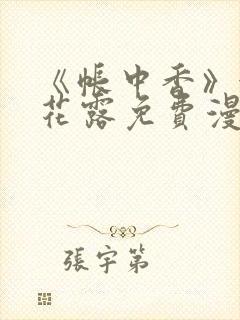 《帳中香》
花露免費漫
張宇第